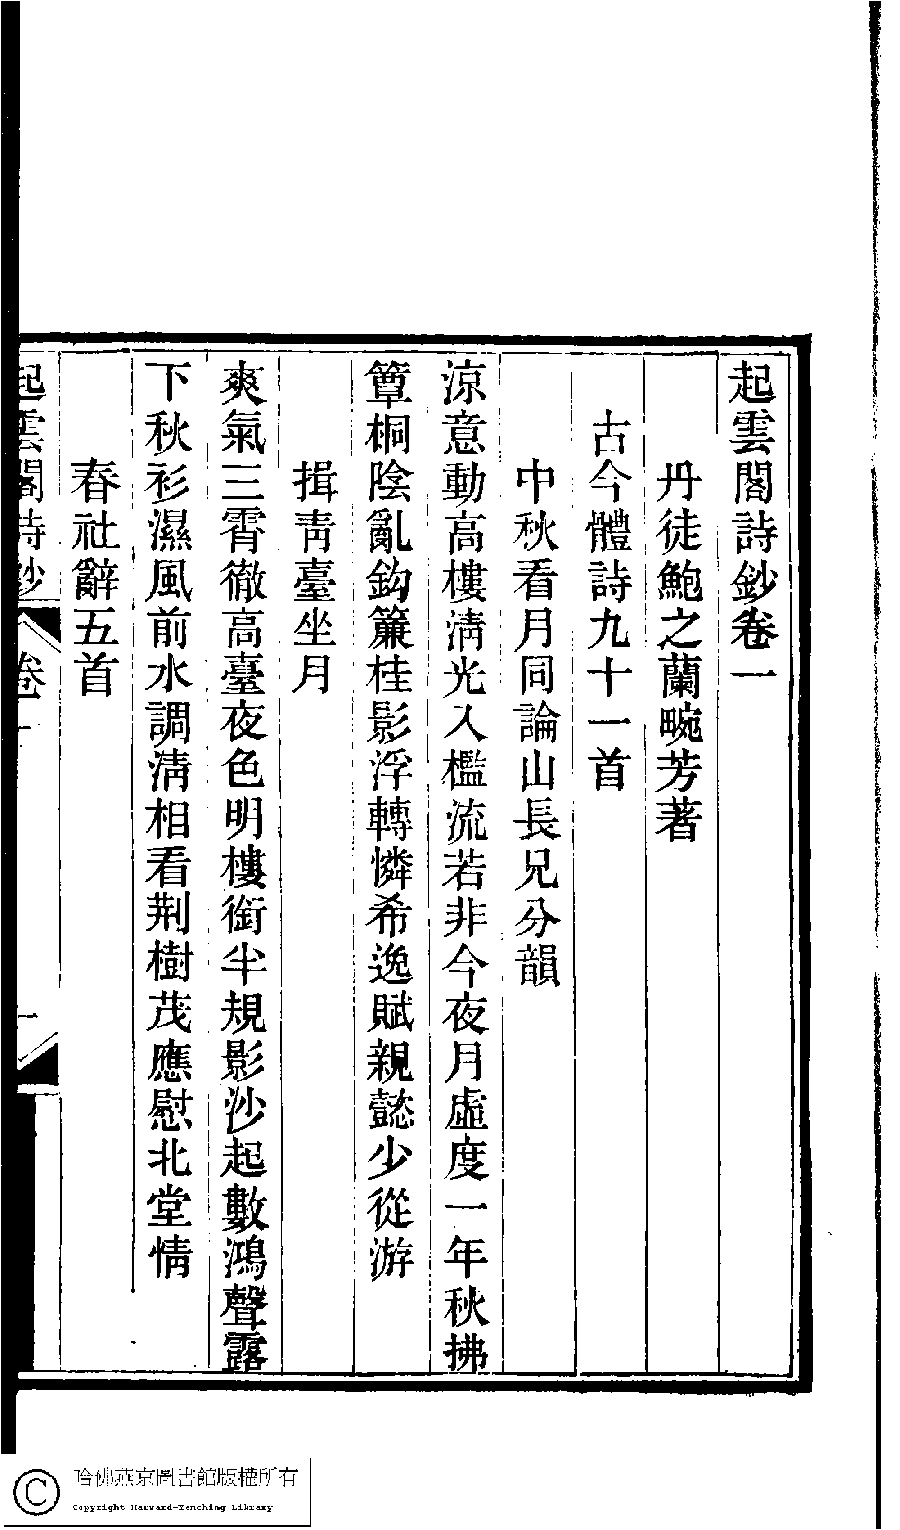 起雲閣詩鈔卷一
丹徒鮑之蘭畹芳著
古今體詩九十一首
中秋看月同論山長兄分韻
涼意動高樓淸光入檻流若非今夜月虛度一年秋拂
簟桐陰亂鈎簾桂影浮轉憐希逸賦親懿少從游
揖靑臺坐月
爽氣三霄徹高臺夜色明樓銜半規影沙起數鴻聲露
下秋衫濕風前水調淸相看荆樹茂應慰北堂情
春社辭五首
起雲閣詩鈔 卷一 一
哈佛燕京圖書館版權所有
Copyright Harvard-Yenching Library